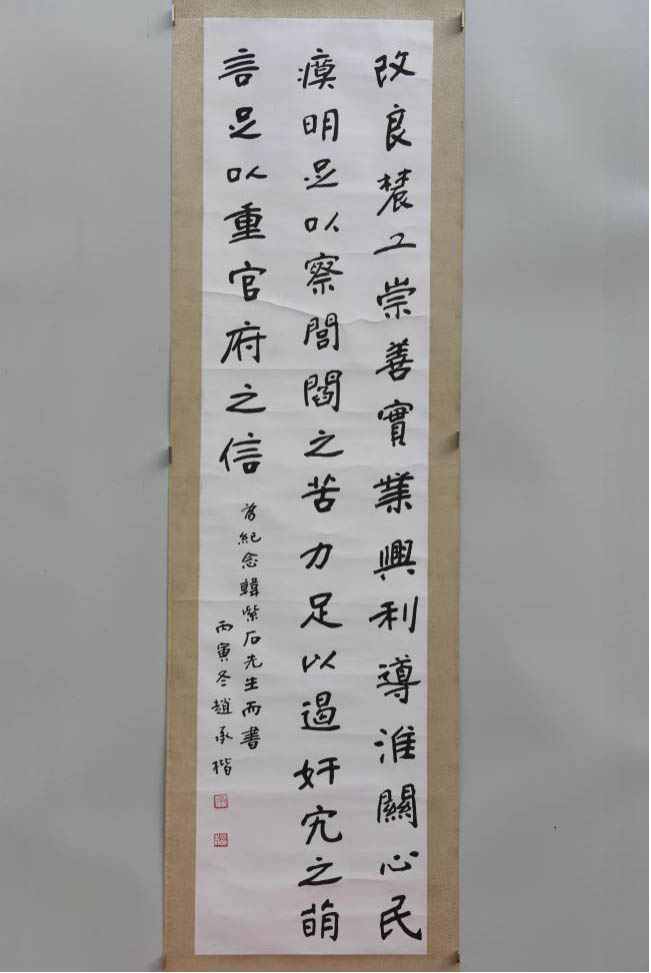 改良農工崇善實業興利導淮關心民
瘼明足以察閭閻之苦力足以遏奸宄之萌
言足以重官府之信
為紀念韓紫石先生而書
丙寅冬趙承楷